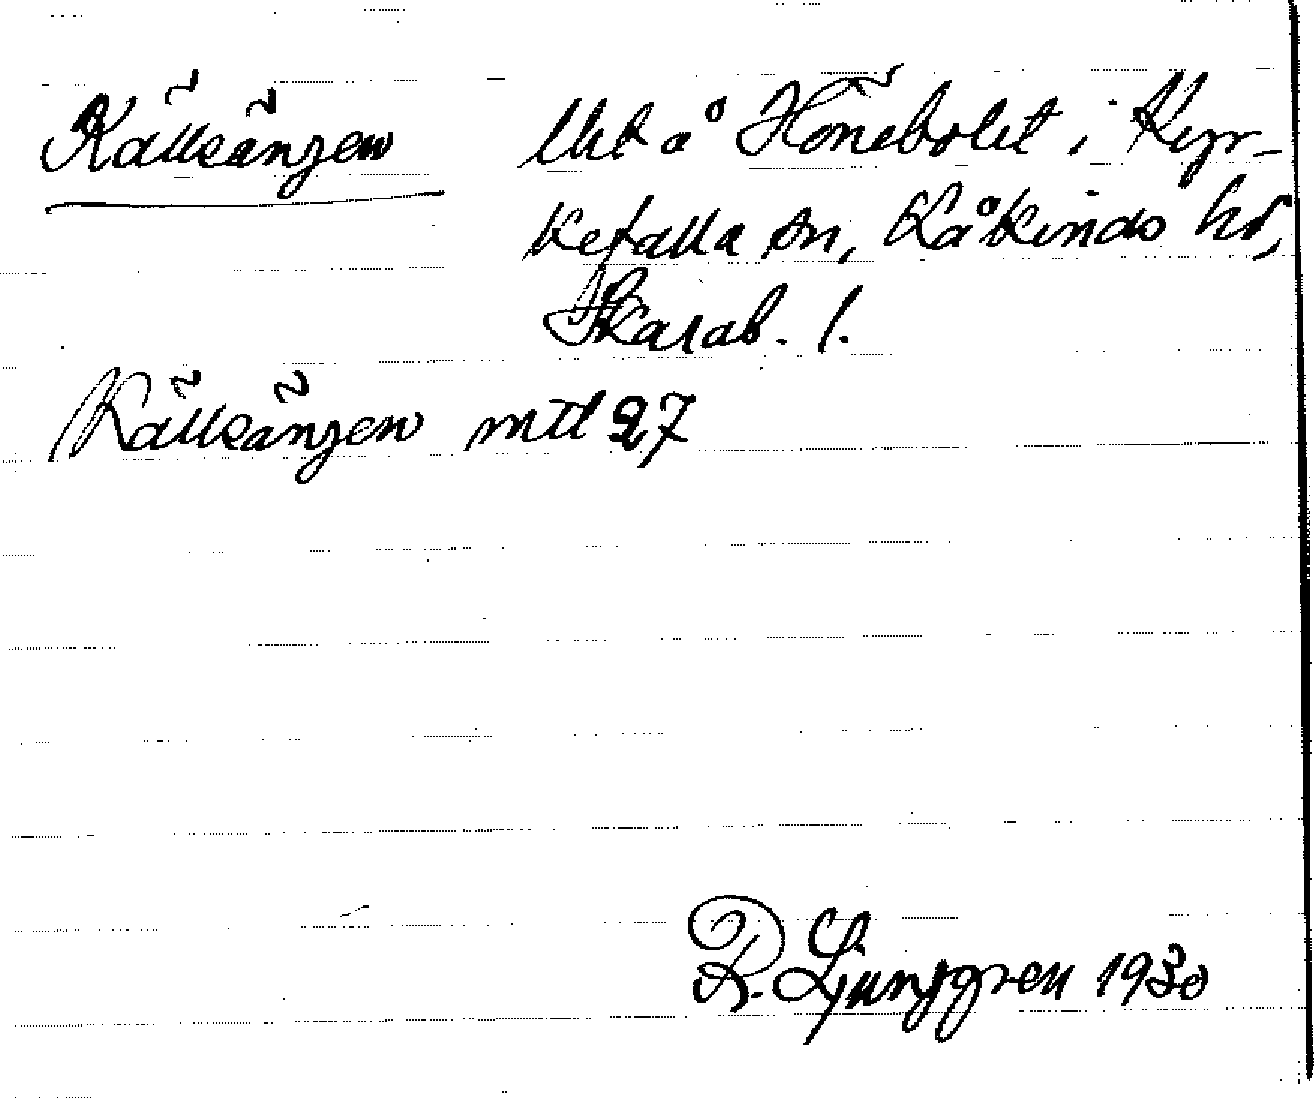 Källsängen Utt å Hönebolet i Kyr-
kefalla sn, Kåkinds hd,
Skarab. l.
Källsängen mtl 27
R. Ljunggren 1930